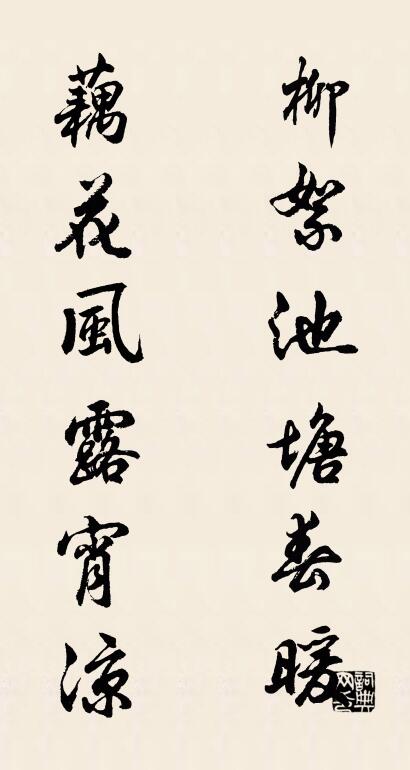 柳絮池塘春暖
藕花風露宵凉
詞典网